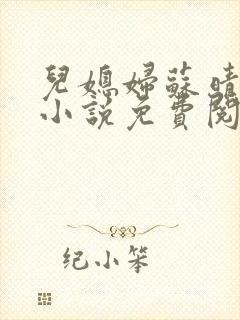 兒媳婦蘇晴
小説免費閱
纪小笨